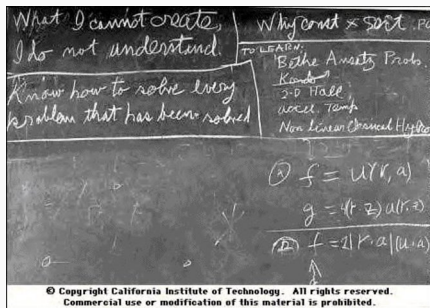 What I cannot create,
I do not understand.
Know how to solve every
problem that has been solved
Why const × sort . PO
TO LEARN:
Bethe Ansatz Prob.
Kondo
2-D Hall
accel. Temp
Non Linear Classical Hydro
(A) f = u(r, a)
g = 4(r·z) u(r, z)
(B) f = 2|r·a|(u·a)
© Copyright California Institute of Technology. All rights reserved.
Commercial use or modification of this material is prohibited.